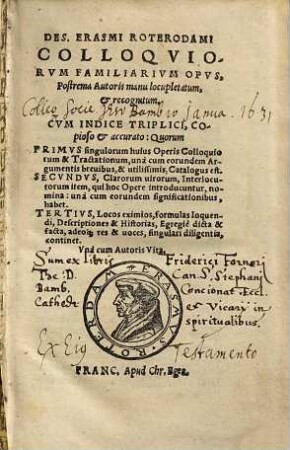 DES. ERASMI ROTERODAMI
COLLOQVIO-
RVM FAMILIARIVM OPVS,
Postrema Autoris manu locupletatum,
& recognitum,
Colleg Socie Jesu Bamb io Janua. 1631
CVM INDICE TRIPLICI, CO-
pioso & accurato: Quorum
PRIMVS singulorum huius Operis Colloquio
rum & Tractationum, unà cum eorundem Ar-
gumentis breuibus, & utilissimis, Catalogus est.
SECVNDVS, Clarorum uirorum, Interlocu-
torum item, qui hoc Opere introducuntur, no-
mina: unà cum eorundem significationibus,
habet.
TERTIVS, Locos eximios, formulas loquen-
di, Descriptiones & Historias, Egregiè dicta &
facta, adeoq; res & uoces, singulari diligentia,
continet.
Vnà cum Autoris Vita.
Sum ex libris Friderici Forneri
The: D. Can S. Stephani
Bamb. Concionat Eccl.
Cathedr et Vicarij in
spiritualibus.
ERASMVS ROTERDAM
Ex Eiq Testamento
FRANC. Apud Chr. Ege.